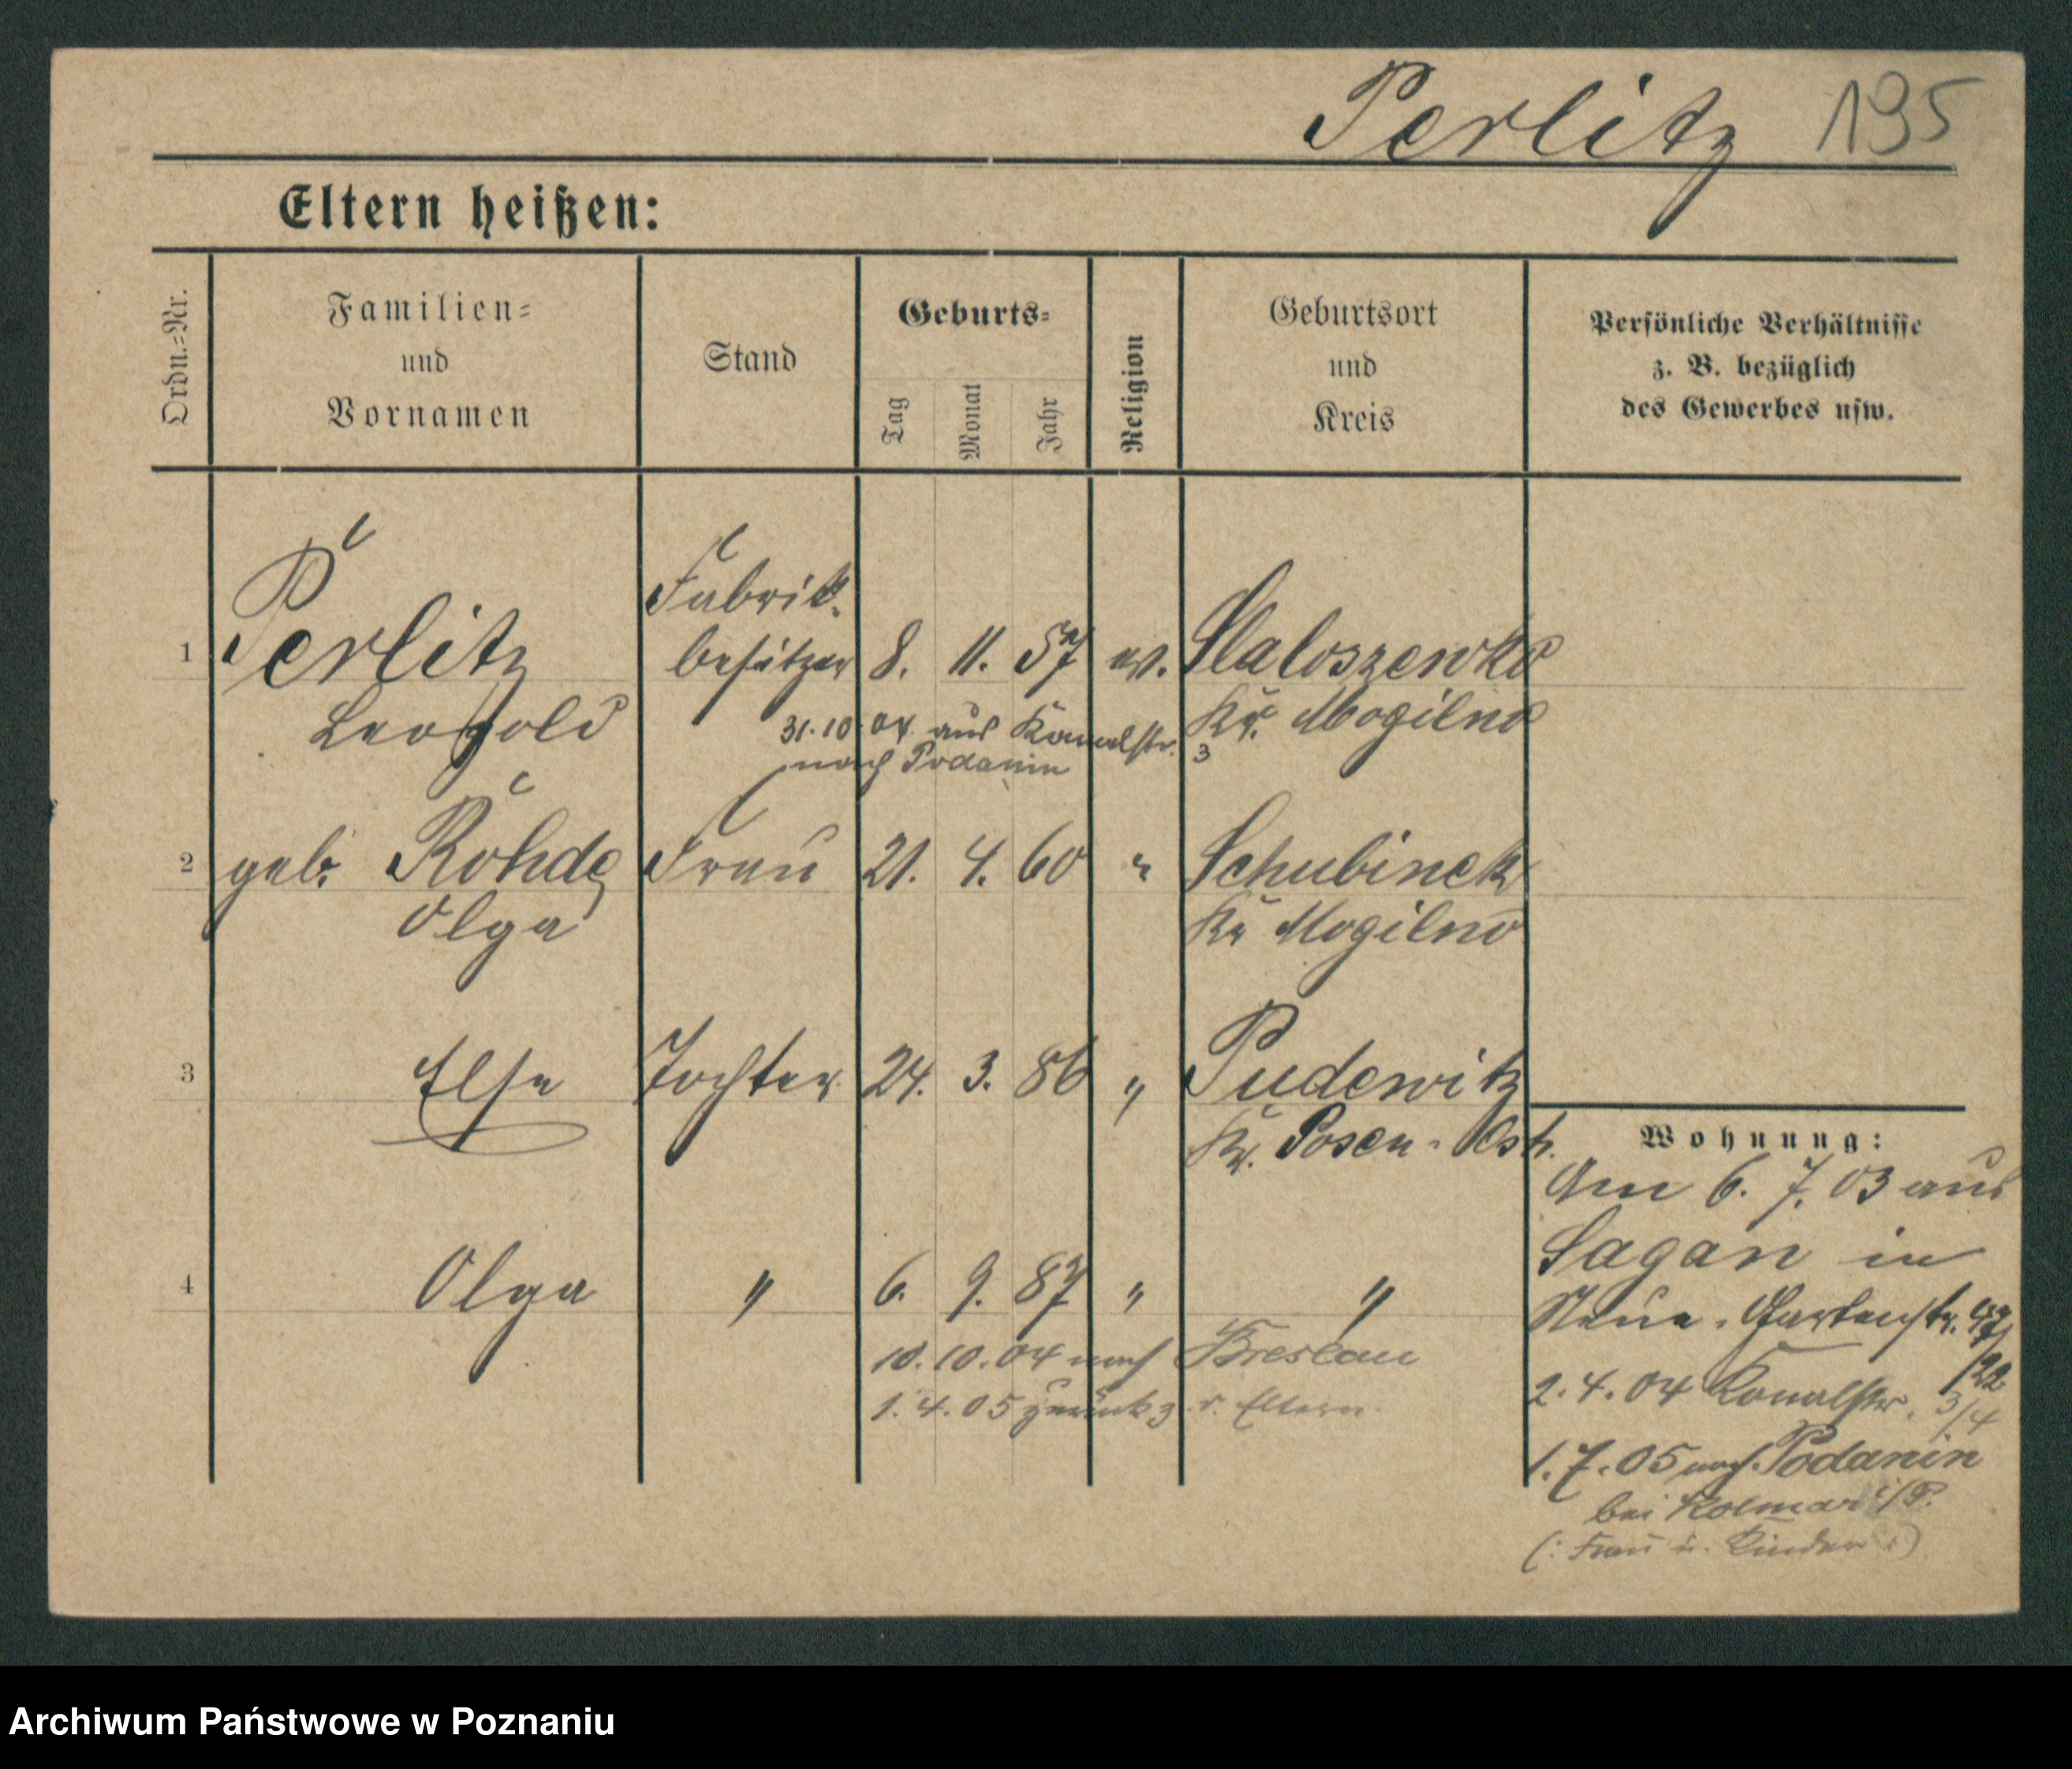 Perlitz 195
Eltern heißen:
Ordn.-Nr.
Familien-
und
Vornamen
Stand
Geburts-
Tag
Monat
Jahr
Religion
Geburtsort
und
Kreis
Persönliche Verhältnisse
z. B. bezüglich
des Gewerbes usw.
1 Perlitz Fabrik-
besitzer 8. 11. 57 ev.
Leopold Kr. Mogilno
31.10.04 aus Kanalstr. 3
nach Podanin
2 geb. Rohde Frau 21. 4. 60 " Schubinek
Olga Kr Mogilno
3 Else Tochter 24. 3. 86 " Pudewitz
Kr. Posen-Ost.
4 Olga " 6. 9. 87 " "
10.10.04 nach Breslau
1.4.05 zurück z. d. Eltern
Wohnung:
Am 6. 7. 03 aus
Sagan in
Neue Gartenstr.
2.4.04 Kanalstr. 3/4
1.7.05 nach Podanin
bei Kolmar i/P.
(: Frau u. Kinder :)
Archiwum Państwowe w Poznaniu